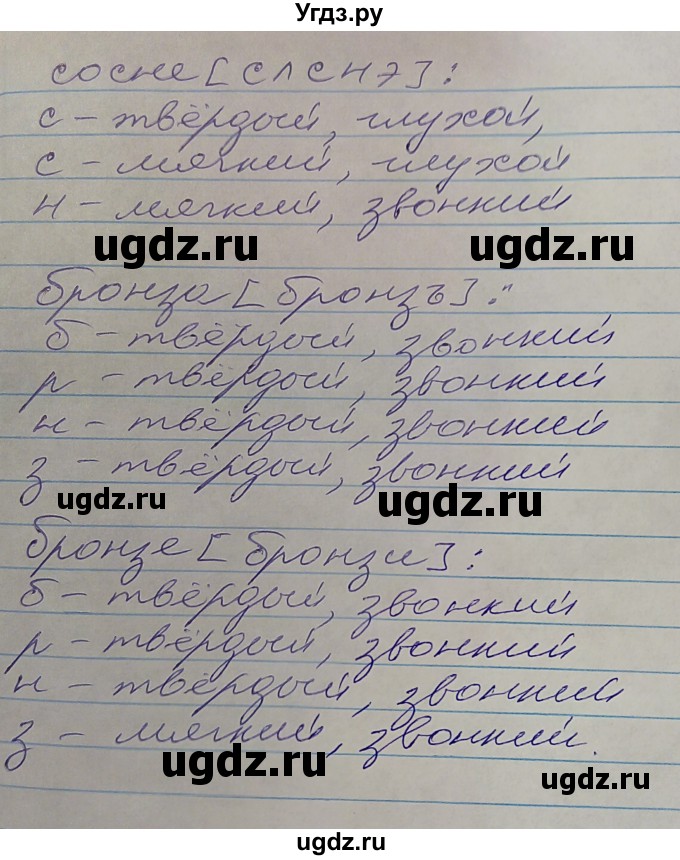 Угдз.ру
сосне [сʌснэ]:
с – твёрдый, глухой,
с – мягкий, глухой
н – мягкий, звонкий
ugdz.ru ugdz.ru
бронза [бронзъ]:
б – твёрдый, звонкий
р – твёрдый, звонкий
н – твёрдый, звонкий
з – твёрдый, звонкий
ugdz.ru ugdz.ru
бронзе [бронзи]:
б – твёрдый, звонкий
р – твёрдый, звонкий
н – твёрдый, звонкий
з – мягкий, звонкий.
ugdz.ru ugdz.ru
ugdz.ru